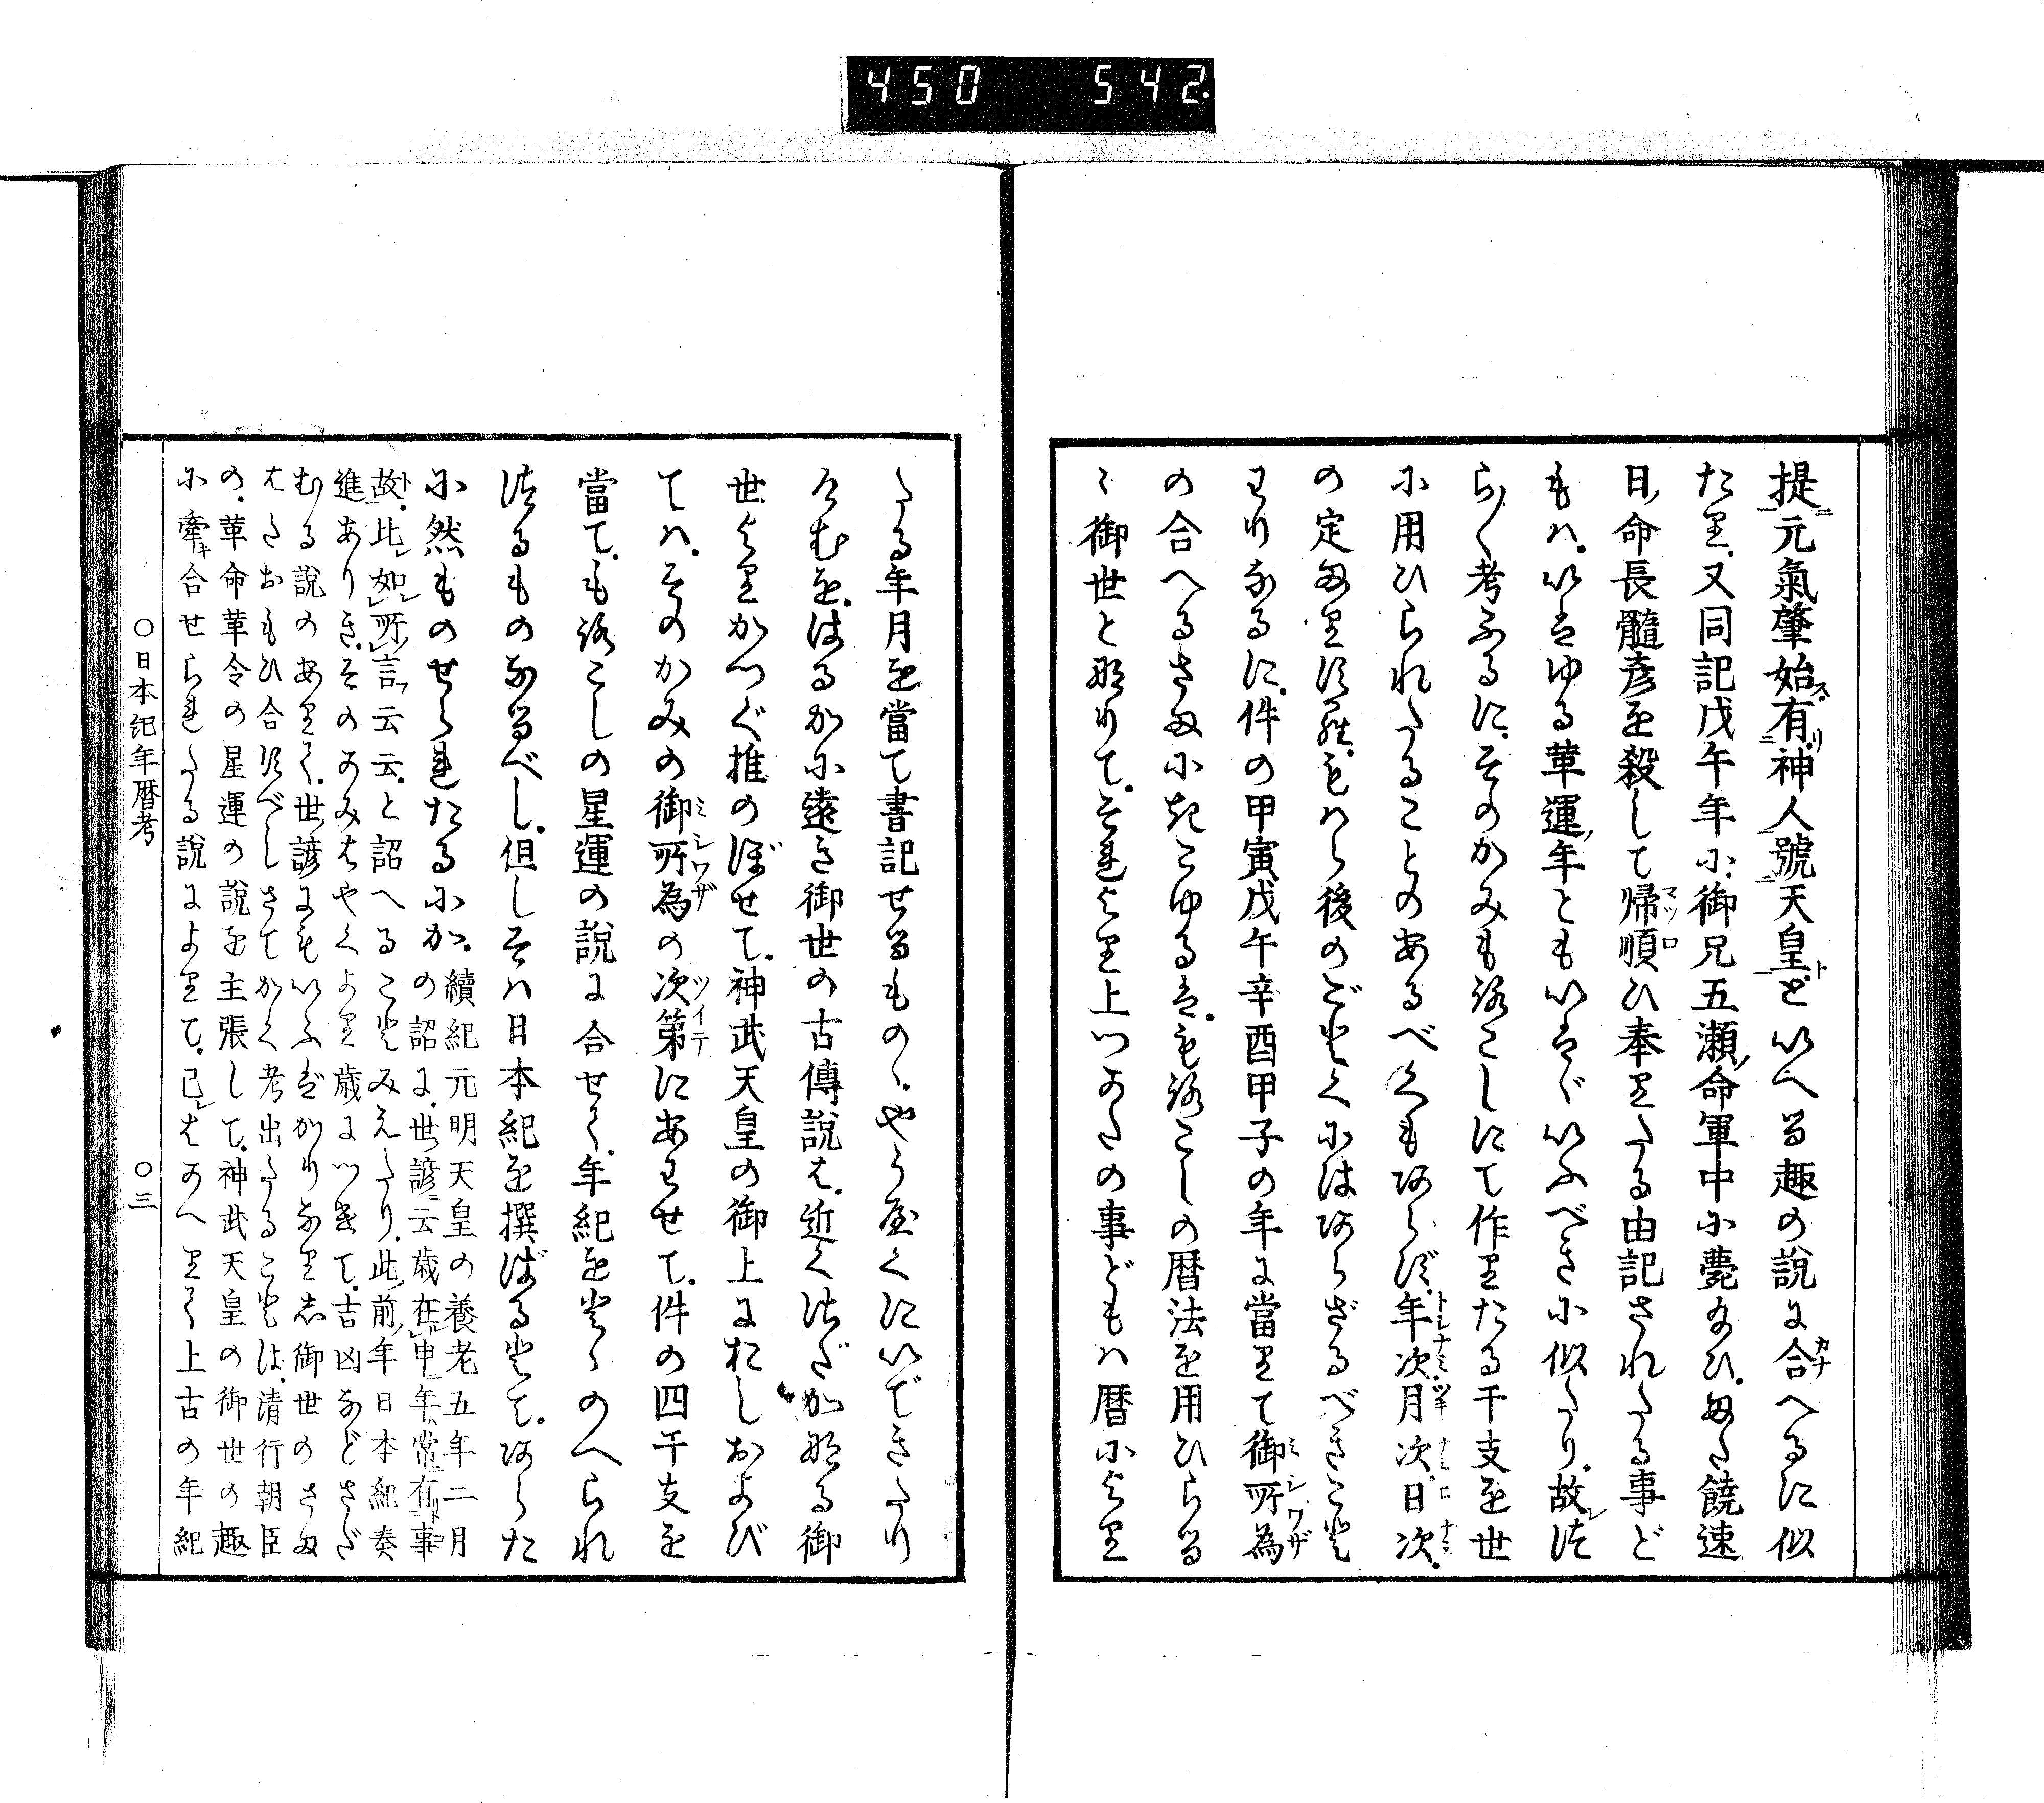 450 542
提元氣肇始有神人號天皇といへる趣の説に合へるに似
たり、又同記戊午年に、御兄五瀬命軍中に薨給ひ、また饒速
日命長髓彦を殺して帰順ひ奉りたる由記されたる事ど
もハ、いはゆる革運年ともいはゞいふべきに似たり、故つ
らく考ふるに、そのかみもろこしにて作りたる干支を世
に用ひられたることのあるべくもあらず、年次月次日次
の定まりすら、もはら後のごとくにはあらざるべきこと
わりなるに、件の甲寅戊午辛酉甲子の年に當りて御所為
の合へるさまにきこゆるは、もろこしの暦法を用ひらる
ゝ御世と那りて、それより上つかたの事どもハ暦により
たる年月を當て書記せるもの、やう\/くにいできたり
けむを、はるかに遠き御世の古傳説は、近くつだか那る御
世よりかつ\/ぐ推のぼせて、神武天皇の御上におしおよび
てハ、そのかみの御所為の次第にあわせて、件の四干支を
當て、もろこしの星運の説に合せて、年紀をとゝのへられ
つるものなるべし、但しそハ日本紀を撰ばるとて、あらた
に然ものせられたるにか、
續紀元明天皇の養老五年二月
の詔に、世諺云歳在申年常有事
故、比如所言云云、と詔へることみえたり、此前年日本紀奏
進ありき、そのかみはやくより歳につきて、吉凶などさだ
むる説のありて、世諺にもいふばかりなりし御世のさま
はたおもひ合すべしさてかく考出たることは、清行朝臣
の、革命革令の星運の説を主張して、神武天皇の御世の趣
に牽合せられたる説によりて、己はかへりて上古の年紀
○日本紀年暦考 ○三